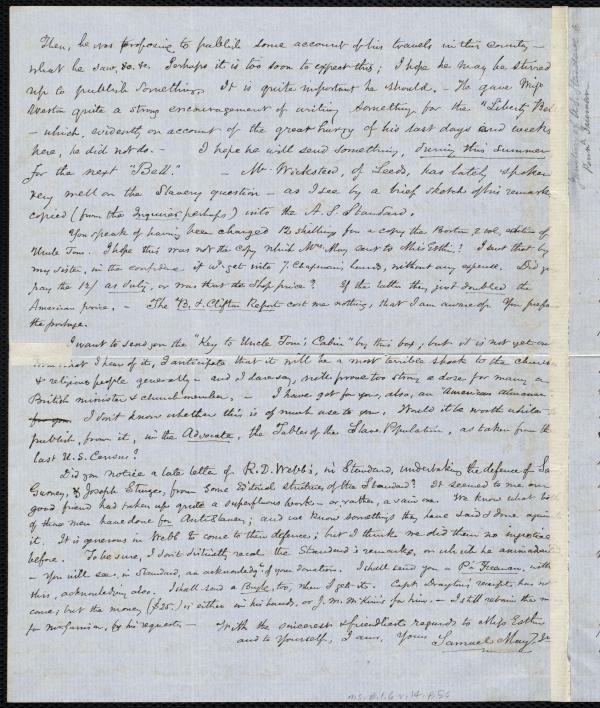 Then, he was proposing to publish some account of his travels in this country –
what he saw, &c. &c. Perhaps it is too soon to expect this; I hope he may be stirred
up to publish something. It is quite important he should. – He gave Miss
Weston quite a strong encouragement of writing something for the "Liberty Bel
– which, evidently on account of the great hurry of his last days and weeks
here, he did not do. – I hope he will send something, during this summer
for the next "Bell." – Mr. Wicksteed, of Leeds, has lately spoken
very well on the Slavery question – as I see by a brief sketch of his remarks
copied (from the Inquirer perhaps) into the A. S. Standard.
You speak of having been charged 12 shillings for a copy the Boston, 2 vol. edition of
Uncle Tom. I hope this was not the copy which Mrs. May sent to Miss Esthr.? I sent that by
my sister, in the confidence it wd. get into J. Chapman's hands, without any expense. Did yo
pay the 12/ as duty, or was that the shop price? If the latter they just doubled the
American price. – The B. & Clifton Report cost me nothing, that I am aware of. You prepa
the postage.
I want to send you the "Key to Uncle Tom's Cabin" by this box, but it is not yet
what I hear of it, I anticipate that it will be a most terrible shock to the churches
& religious people generally – and I dare say, will prove too strong a dose for many a
British minister & church member. – I have got for you, also, an American almanac
for you. I don't know whether this is of much use to you. Would it be worth while to
publish, from it, in the Advocate, the Tables of the Slave Population, as taken from the
last U. S. Census?
Did you notice a late letter of R. D. Webb's, in Standard, undertaking the defence of
Gurney, & Joseph Sturge, from some editorial strictures of the Standard? It seemed to me our
good friend had taken up quite a superfluous work – or, rather, a vain one. We know what
of these men have done for Antislavery; and we know something they have said & done again
it. It is generous in Webb to come to their defence; but I think we did them no injustice
before. To be sure, I don't distinctly recal the Standard's remarks, on which he animadve
– You will see, in Standard, an acknowledgt. of your donation. I shall send you a Pa. Freeman, with
this, acknowledging also. I shall send a Bugle, too, when I get it. Capt. Drayton's receipt has not
come; but the money ($25.) is either in his hands, or J. M. McKim's for him. – I still retain the
for Mr. Garrison, by his request. – With the sincerest & friendliest regards to Miss Esthr.
and to Yourself, I am, Yours Samuel May, Jr
ms. B.1.6 v.14, p.55